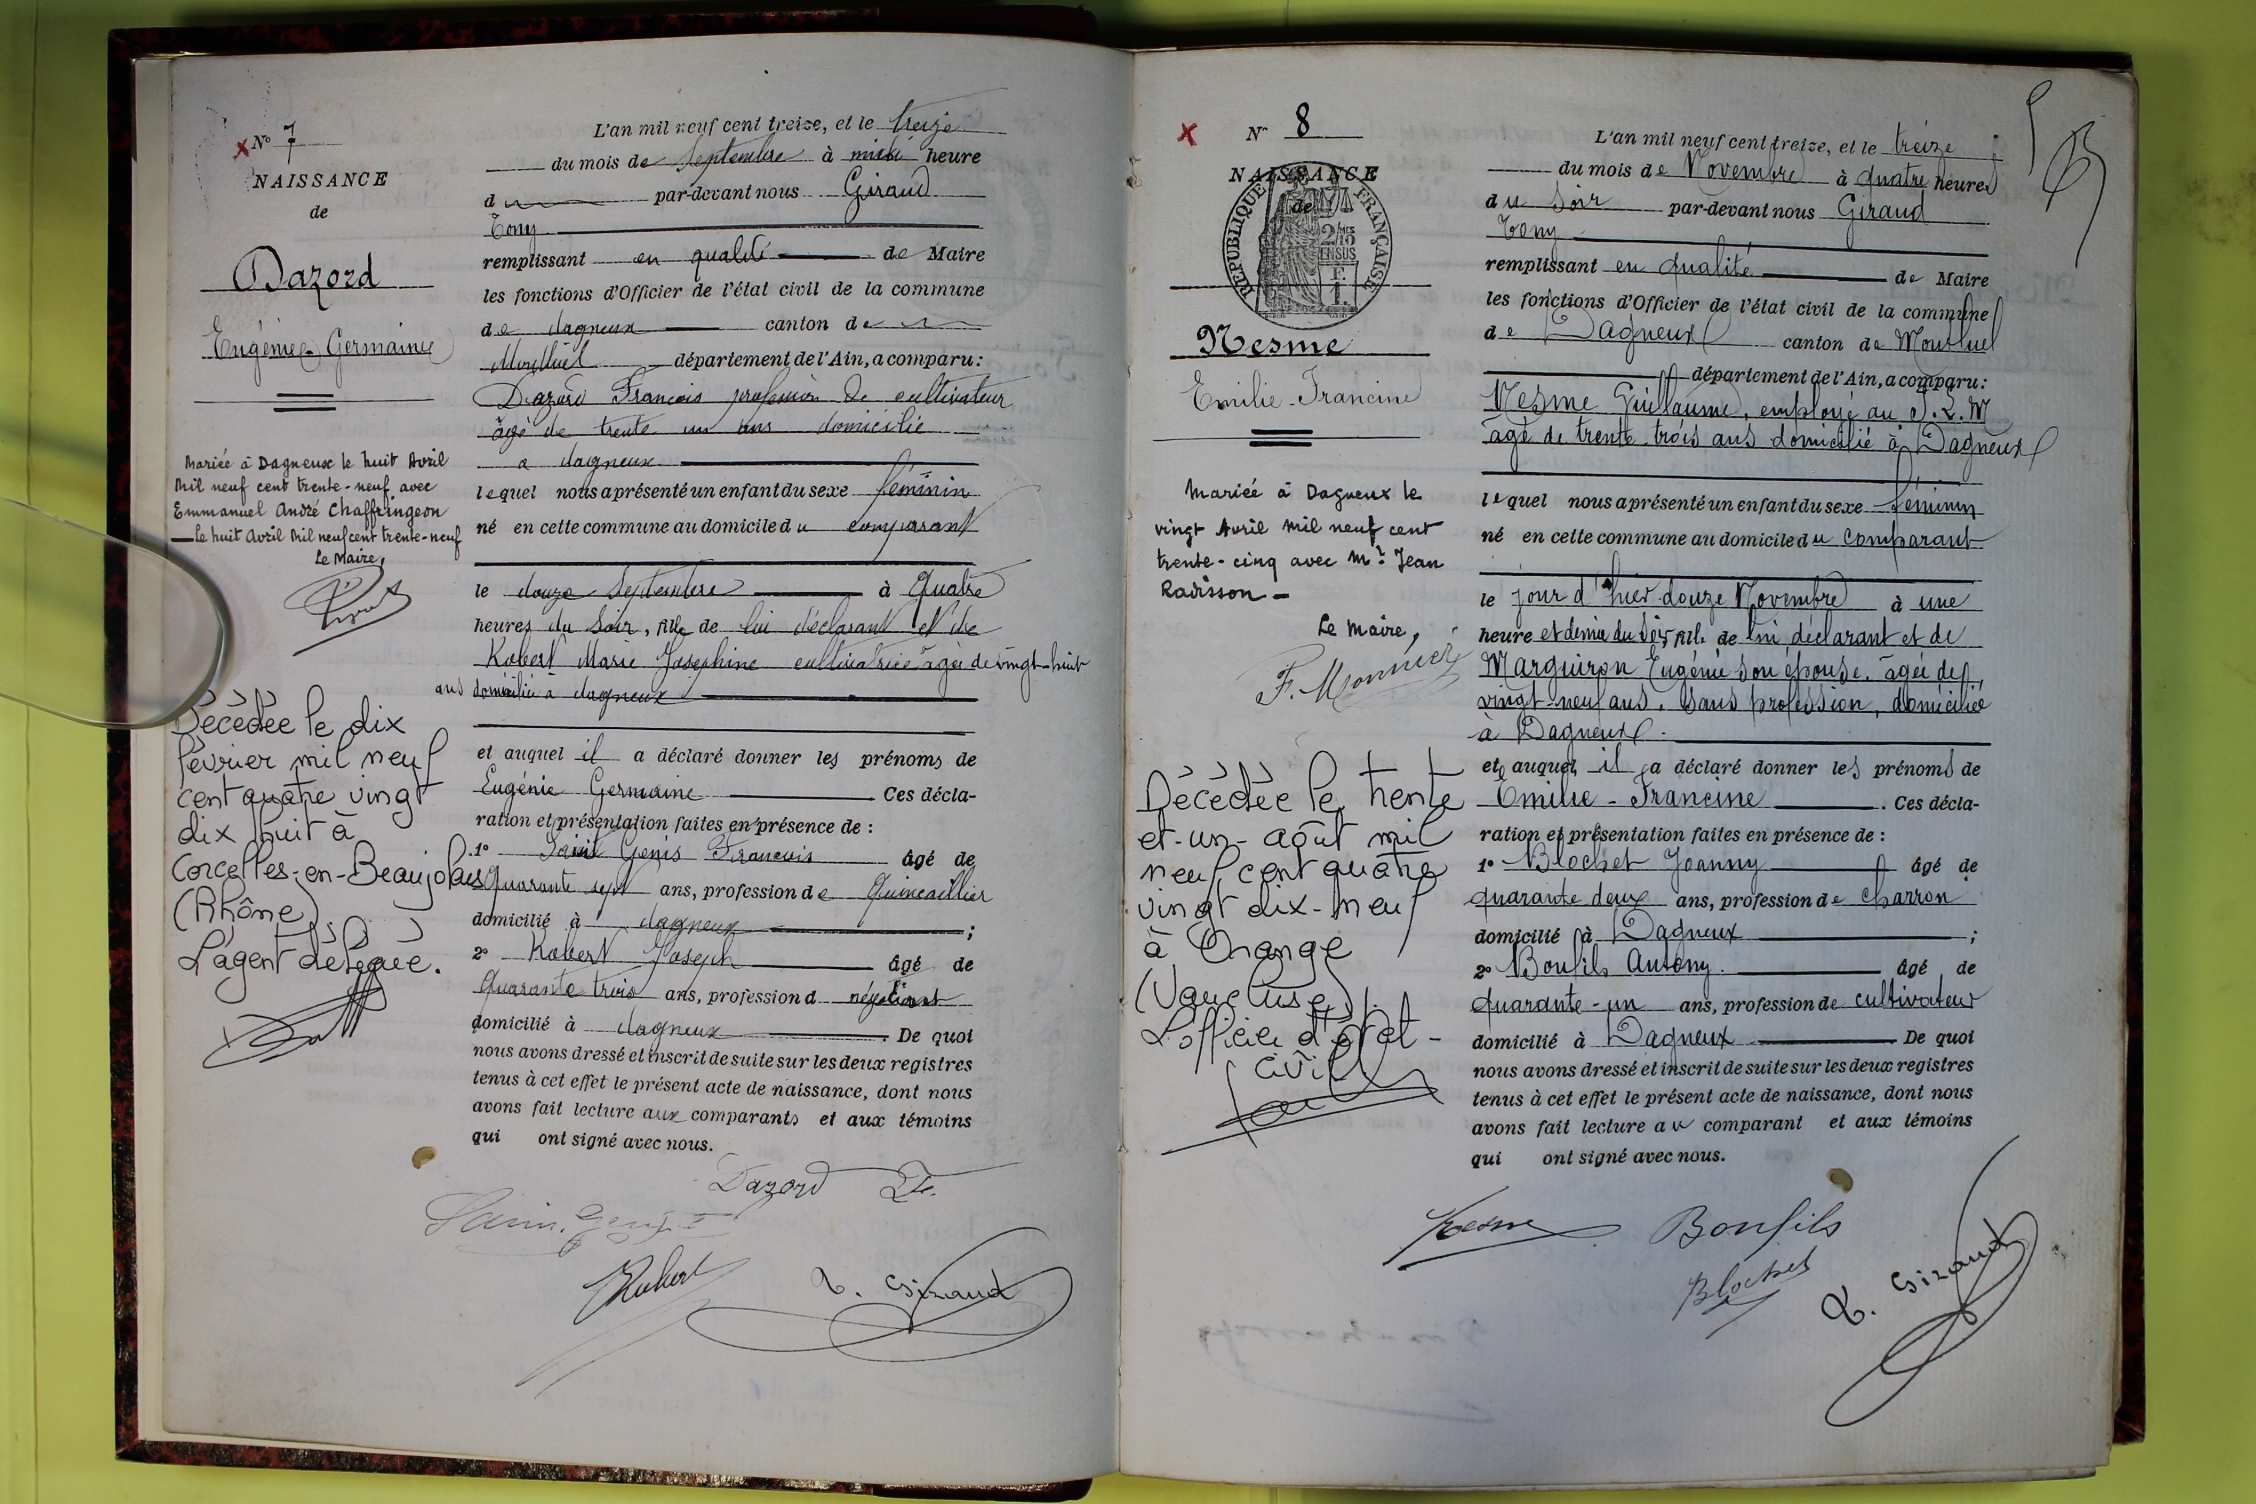 N° 7
NAISSANCE
de
Dazord
Eugénie Germaine
Mariée à Dagneux le huit Avril
Mil neuf cent trente-neuf avec
Emmanuel André Chaffringeon
Le huit Avril Mil neuf cent trente-neuf
Le Maire,
Décédée le dix
février mil neuf
cent quatre vingt
dix huit à
Corcelles-en-Beaujolais
(Rhône)
L'agent délégué.
L'an mil neuf cent treize, et le treize
du mois de Septembre à midi heure
d par-devant nous Giraud
Tony
remplissant en qualité de Maire
les fonctions d'Officier de l'état civil de la commune
de dagneux canton de
Montluel département de l'Ain, a comparu:
Dazord François profession de cultivateur
âgé de trente un ans domicilié
a dagneux
lequel nous a présenté un enfant du sexe féminin
né en cette commune au domicile du comparant
le douze Septembre à quatre
heures du Soir, fille de lui déclarant et de
Robert Marie Joséphine cultivatrice âgée de vingt-huit
ans domicilié à dagneux
et auquel il a déclaré donner les prénoms de
Eugénie Germaine Ces décla-
ration et présentation faites en présence de :
1° Saint Genis François âgé de
Quarante sept ans, profession de Quincaillier
domicilié à dagneux ;
2° Robert Joseph âgé de
Quarante trois ans, profession d négociant
domicilié à dagneux . De quoi
nous avons dressé et inscrit de suite sur les deux registres
tenus à cet effet le présent acte de naissance, dont nous
avons fait lecture aux comparants et aux témoins
qui ont signé avec nous.
Dazord F.
Saint Genis
Robert
T. Giraud
N° 8
NAISSANCE
de
RÉPUBLIQUE FRANÇAISE
2/10MES
EN SUS
Nesme
Emilie-Francine
Mariée à Dagneux le
vingt Avril Mil neuf cent
trente-cinq avec Mr. Jean
Radisson -
Le Maire,
F. Monnier
Décédée le trente
et-un-août mil
neuf cent quatre
vingt dix-neuf
à Orange
(Vaucluse).
L'officier d'état-
civil
L'an mil neuf cent treize, et le treize
du mois de Novembre à quatre heures
du Soir par-devant nous Giraud
Tony
remplissant en qualité de Maire
les fonctions d'Officier de l'état civil de la commune
de Dagneux canton de Montluel
département de l'Ain, a comparu:
Nesme Guillaume, employé au P. L. M
âgé de trente-trois ans domicilié à Dagneux
lequel nous a présenté un enfant du sexe féminin
né en cette commune au domicile du comparant
le jour d'hier douze Novembre à une
heure et demie du Soir, fille de lui déclarant et de
Marguiron Eugénie son épouse, âgée de
vingt-neuf ans, sans profession, domiciliée
à Dagneux.
et auquel il a déclaré donner les prénoms de
Emilie-Francine . Ces décla-
ration et présentation faites en présence de :
1° Blochet Joanny âgé de
quarante deux ans, profession de charron
domicilié à Dagneux ;
2° Bonfils Antony. âgé de
quarante-un ans, profession de cultivateur
domicilié à Dagneux De quoi
nous avons dressé et inscrit de suite sur les deux registres
tenus à cet effet le présent acte de naissance, dont nous
avons fait lecture au comparant et aux témoins
qui ont signé avec nous.
Nesme Bonfils
Blochet
T. Giraud